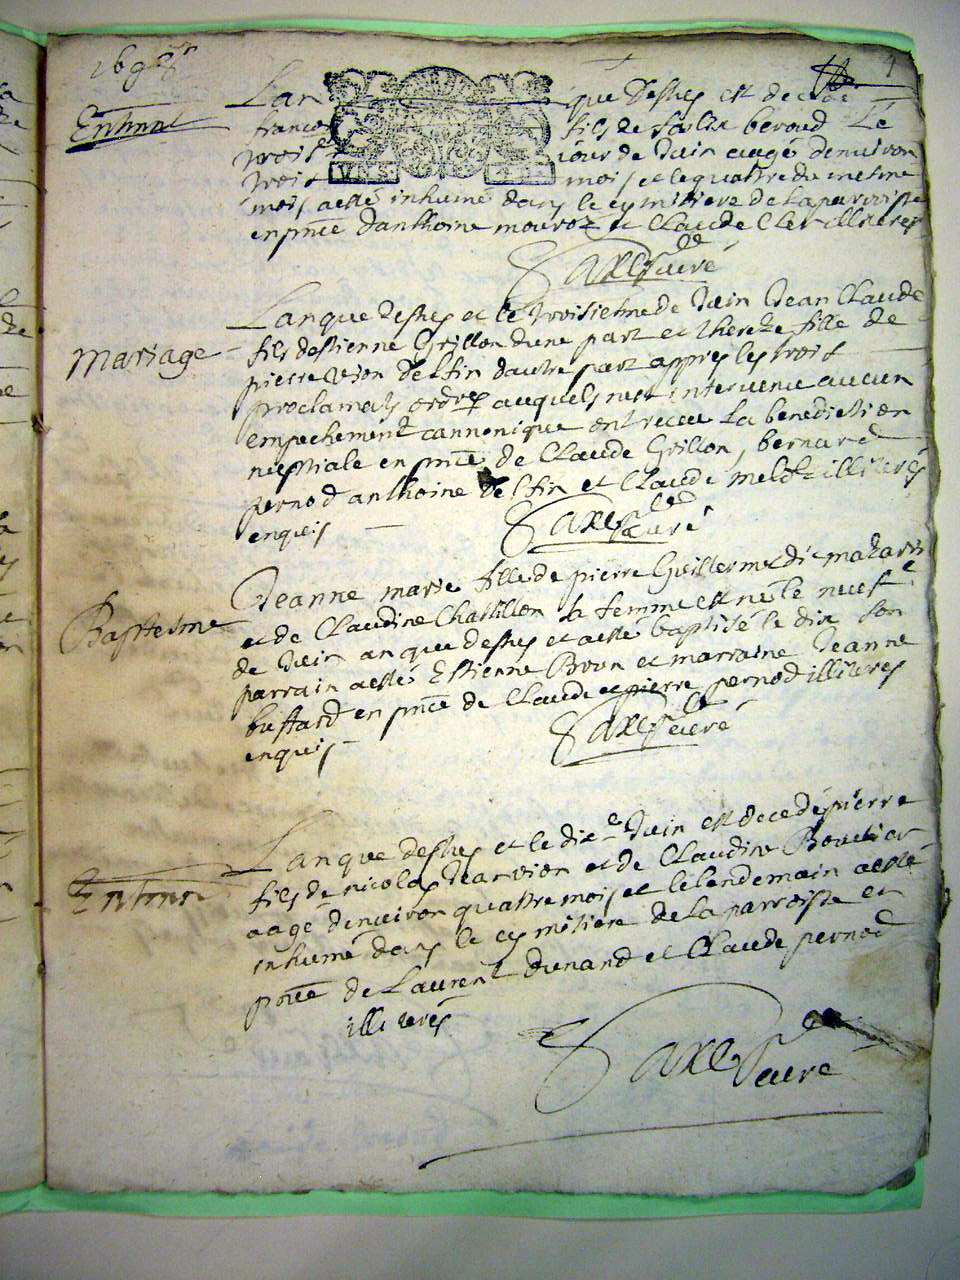 4
Enterrement
Lan que dessus est decede
francois fils de Beroud Le
trois jour de Juin aagé denuiron
trois mois et le quattre du mesme
mois a esté inhumé dans le cymitiere de la parroisse
en pnce danthoine mourot et Claude Cler illiterés
Saxe curé
Mariage
Lan que dessus et le troisiesme de Juin Jean Claude
fils destienne Grillon dune part et Thereze fille de
pierre vion delfin dautre part appres les trois
proclamats ordres auquels nest intervenu aucun
empechement cannonique ont receu La benediction
nuptiale en pnce de Claude Grillon, bernard
pernod anthoine delfin et Claude illiterés
enquis
Saxe curé
Baptesme
Jeanne marie fille de pierre Guillermet di mazarin
et de Claudine Chastillon sa femme est né le neuf
de Juin an que dessus et a esté baptisé le dix son
parrain a esté Estienne Boun et marraine Jeanne
bustard en pnce de Claude et pierre pernod illiterés
enquis
Saxe curé
Lan que dessus et le dix e Juin est decedé pierre
fils de nicolas Jeanvion et de Claudine Bouctier
aagé denuiron quattre mois et le lendemain a esté
inhumé dans le cymitiere de la parroisse en
pnce de Laurent dunand et Claude pernod
illiterés
Saxe curé